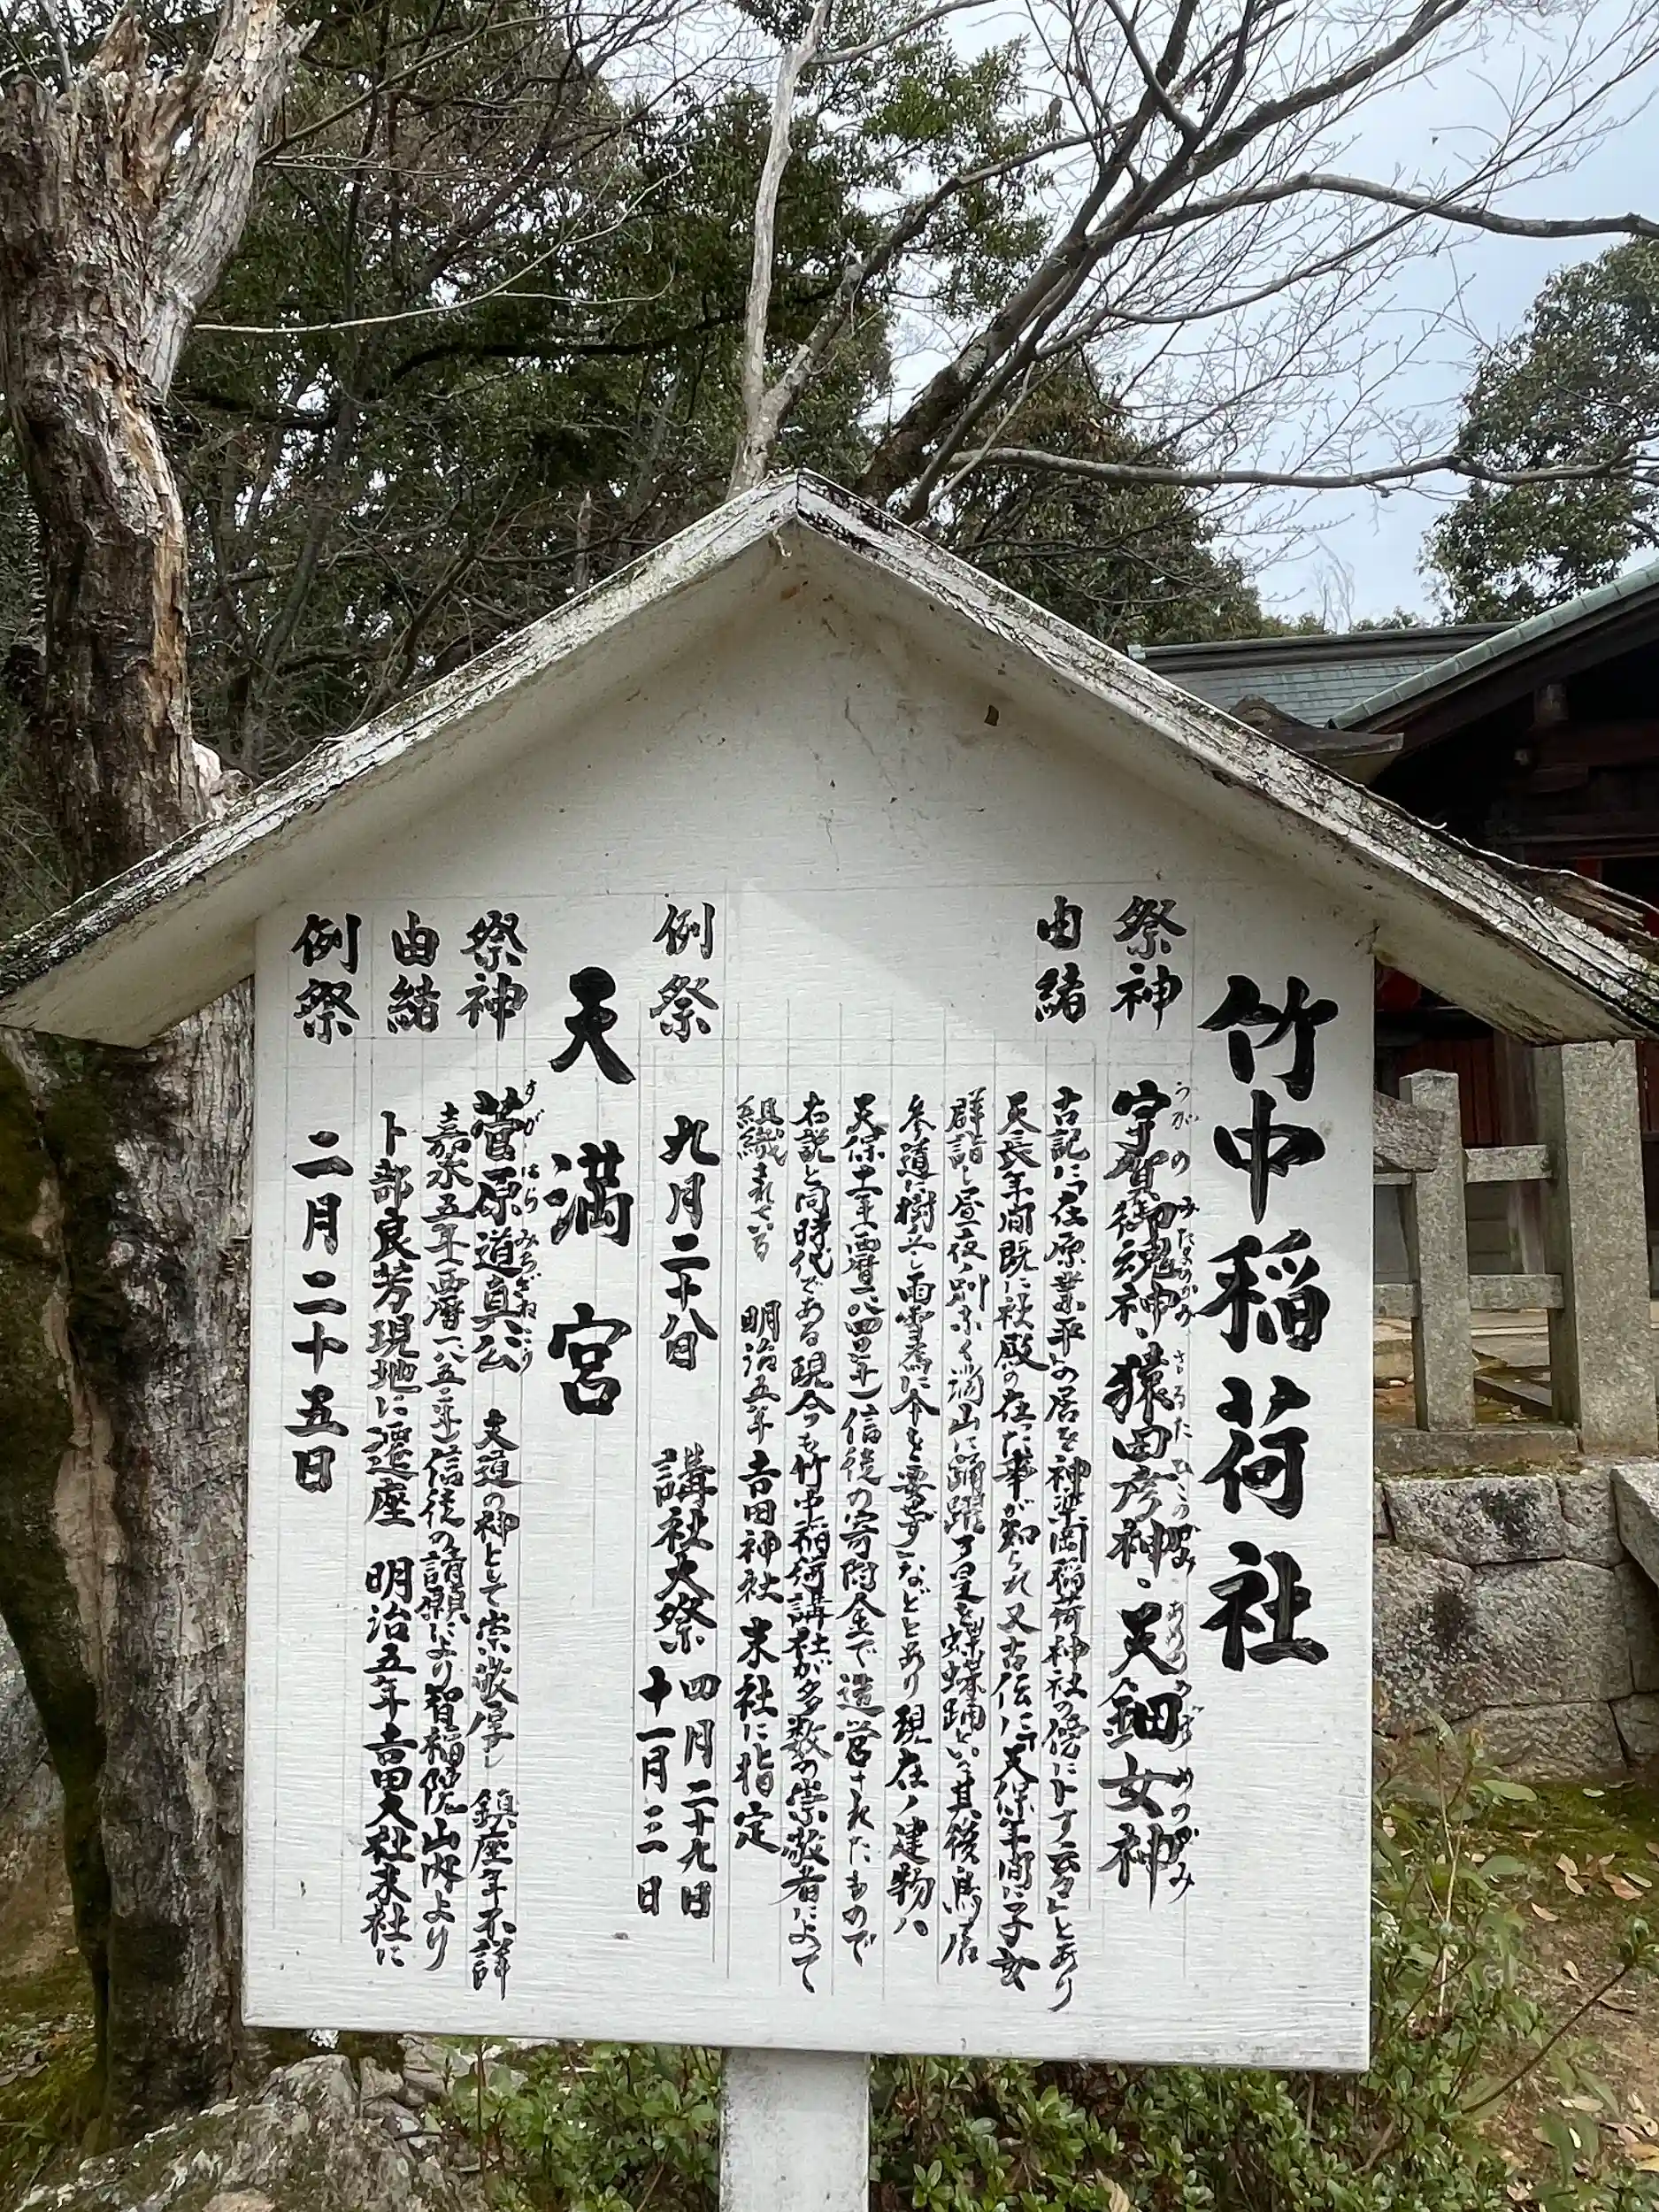 竹中稲荷社
祭神
宇賀御魂神、猿田彦神、天鈿女神
うがのみたまのかみ さるたひこのかみ あめのうずめのかみ
由緒
古記に「在原業平の居を神楽岡稲荷神社の傍に卜す云々」とあり
天長年間既に社殿の在った事が知られ又古伝に「天保年間に子女
群詣し昼夜ノ別なく満山に踊躍す是を蝶蝶踊といふ其後鳥居
参道に樹立し雨雪為に傘を要せず」などとあり現在ノ建物ハ
天保十一年(西暦一八四〇年)信徒の寄附金で造営されたもので
右説と同時代である現今も竹中稲荷講社が多数の崇敬者によって
組織されている 明治五年 吉田神社 末社に指定
例祭
九月二十八日 講社大祭 四月二十九日
十一月三日
天満宮
祭神
菅原道真公 文道の神として崇敬厚し 鎮座年不詳
すがはらみちざねこう
由緒
嘉永五年(西暦一八五二年)信徒の請願により智福院山内より
卜部良芳現地に遷座 明治五年吉田大社末社に
例祭
二月二十五日